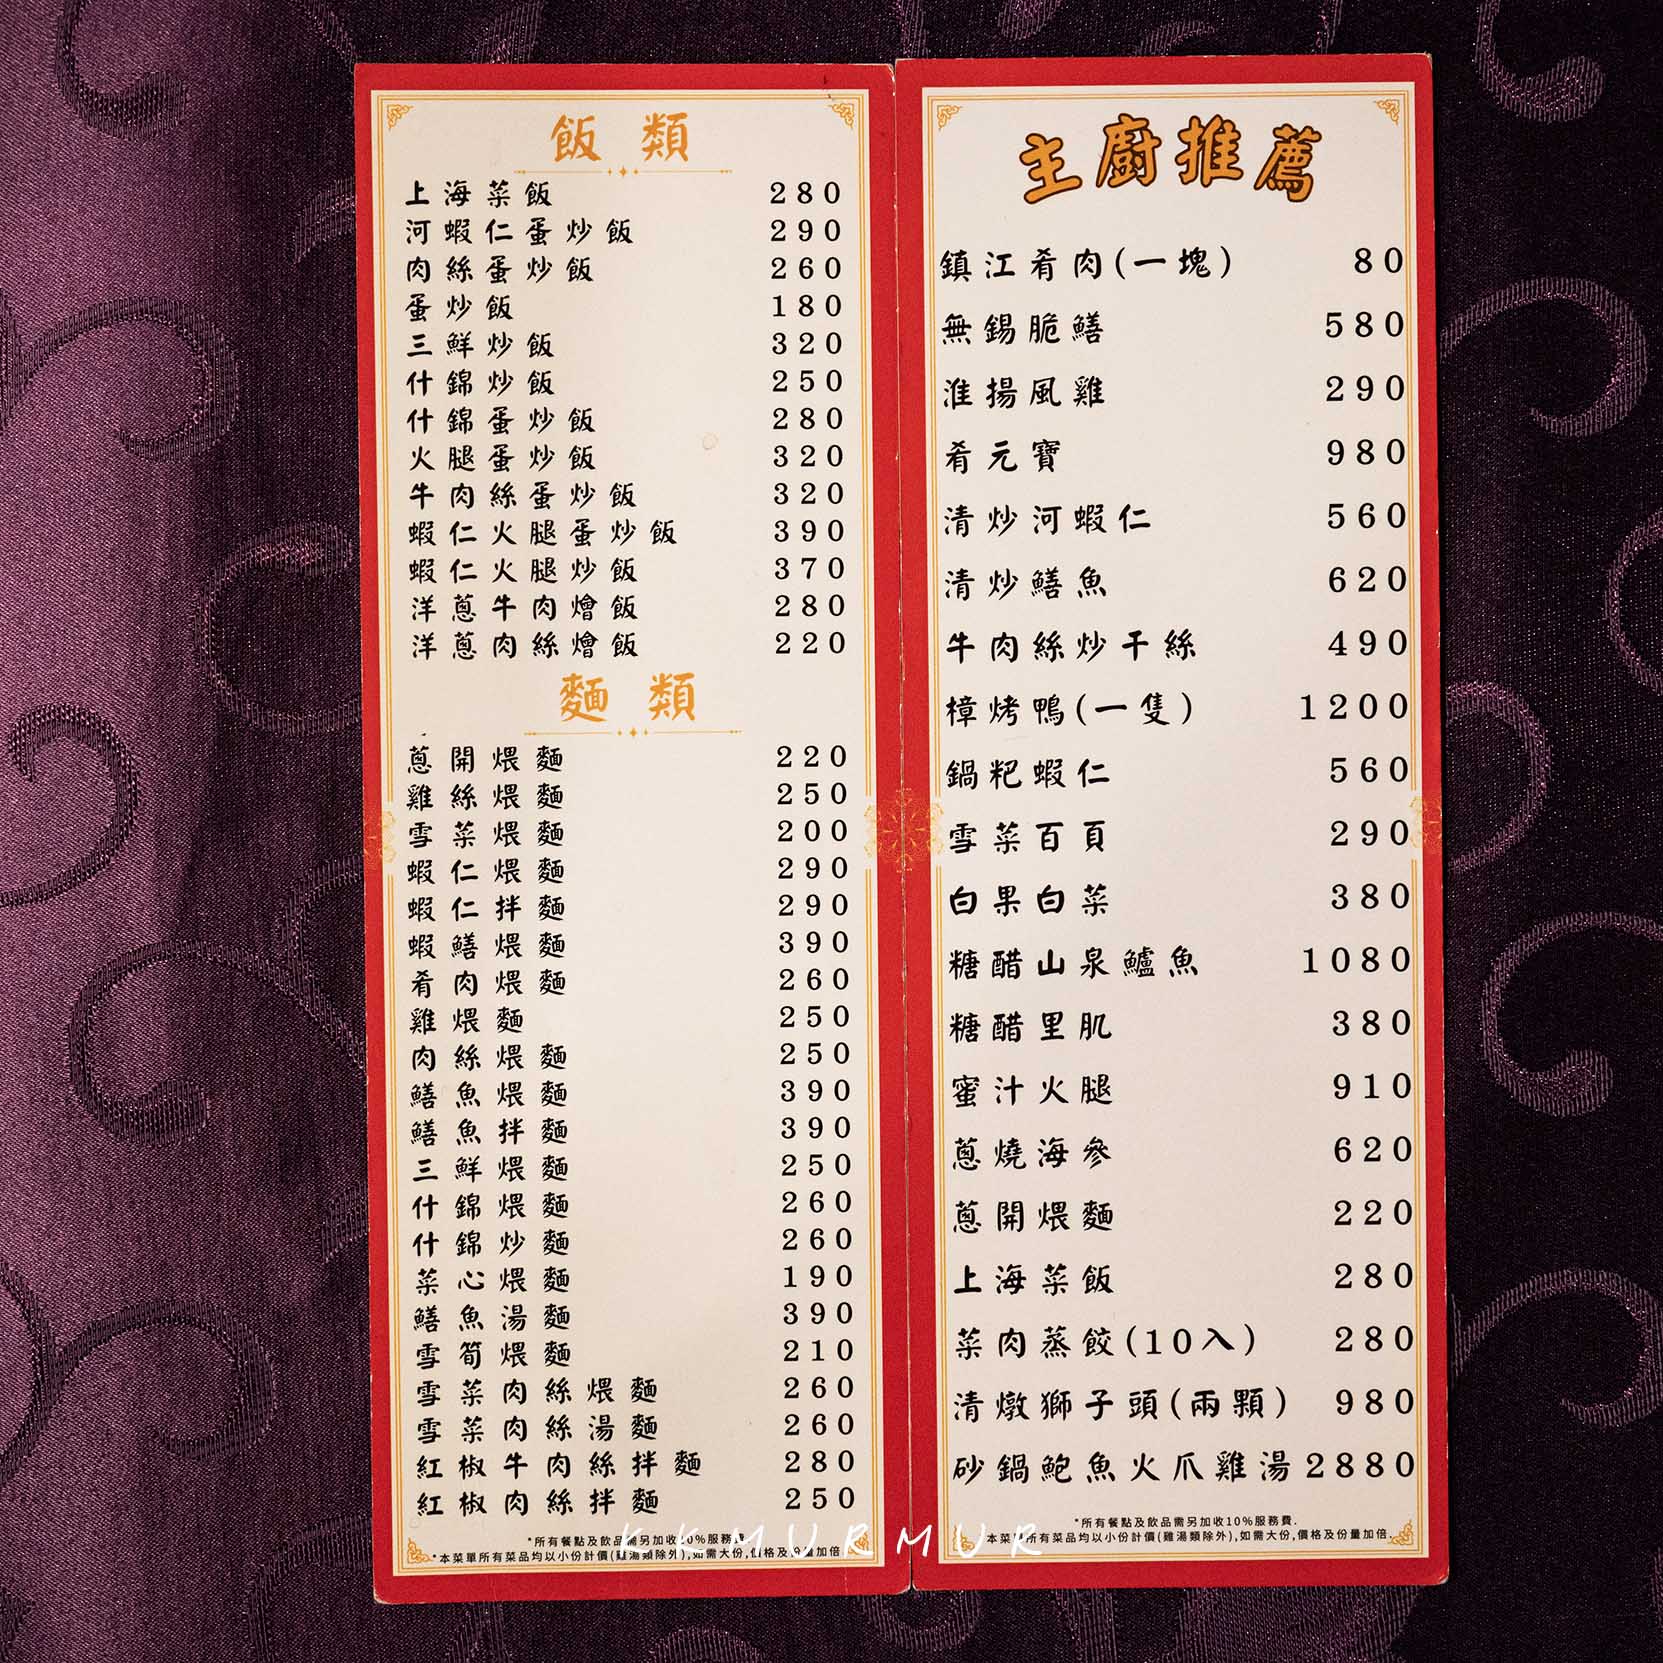 飯類
上海菜飯 280
河蝦仁蛋炒飯 290
肉絲蛋炒飯 260
蛋炒飯 180
三鮮炒飯 320
什錦炒飯 250
什錦蛋炒飯 280
火腿蛋炒飯 320
牛肉絲蛋炒飯 320
蝦仁火腿蛋炒飯 390
蝦仁火腿炒飯 370
洋蔥牛肉燴飯 280
洋蔥肉絲燴飯 220
麵類
蔥開煨麵 220
雞絲煨麵 250
雪菜煨麵 200
蝦仁煨麵 290
蝦仁拌麵 290
蝦鱔煨麵 390
肴肉煨麵 260
雞煨麵 250
肉絲煨麵 250
鱔魚煨麵 390
鱔魚拌麵 390
三鮮煨麵 250
什錦煨麵 260
什錦炒麵 260
菜心煨麵 190
鱔魚湯麵 390
雪筍煨麵 210
雪菜肉絲煨麵 260
雪菜肉絲湯麵 260
紅椒牛肉絲拌麵 280
紅椒肉絲拌麵 250
*所有餐點及飲品需另加收10%服務費.
*本菜單所有菜品均以小份計價(雞湯類除外),如需大份,價格及份量加倍.
主廚推薦
鎮江肴肉(一塊) 80
無錫脆鱔 580
淮揚風雞 290
肴元寶 980
清炒河蝦仁 560
清炒鱔魚 620
牛肉絲炒干絲 490
樟烤鴨(一隻) 1200
鍋粑蝦仁 560
雪菜百頁 290
白果白菜 380
糖醋山泉鱸魚 1080
糖醋里肌 380
蜜汁火腿 910
蔥燒海參 620
蔥開煨麵 220
上海菜飯 280
菜肉蒸餃(10入) 280
清燉獅子頭(兩顆) 980
砂鍋鮑魚火爪雞湯 2880
*所有餐點及飲品需另加收10%服務費.
*本菜單所有菜品均以小份計價(雞湯類除外),如需大份,價格及份量加倍.
KKMURMUR